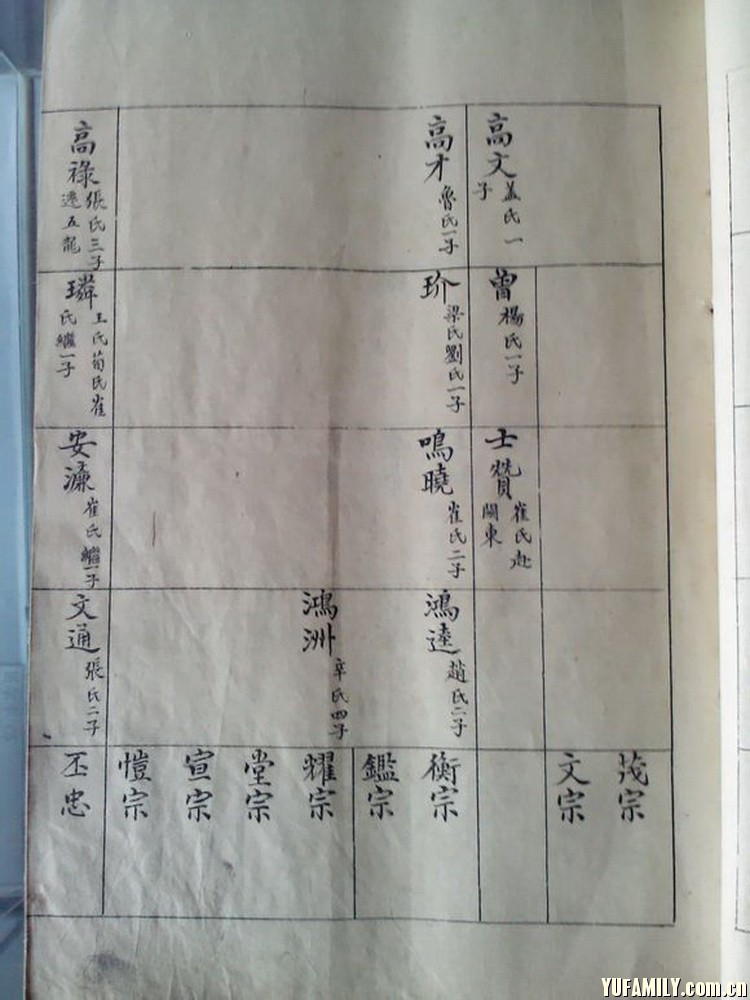 高文
蓋氏一
子
高才
魯氏一子
高祿
張氏三子
遷五龍
曾
楊氏一子
玠
梁氏劉氏一子
璘
王氏荀氏崔
氏繼一子
士贊
崔氏赴
關東
鳴曉
崔氏二子
安濂
崔氏繼一子
鴻逵
趙氏二子
鴻洲
辛氏四子
文通
張氏二子
茂宗
文宗
衡宗
鑑宗
耀宗
堂宗
宣宗
愷宗
丕忠
YUFAMILY.com.cn